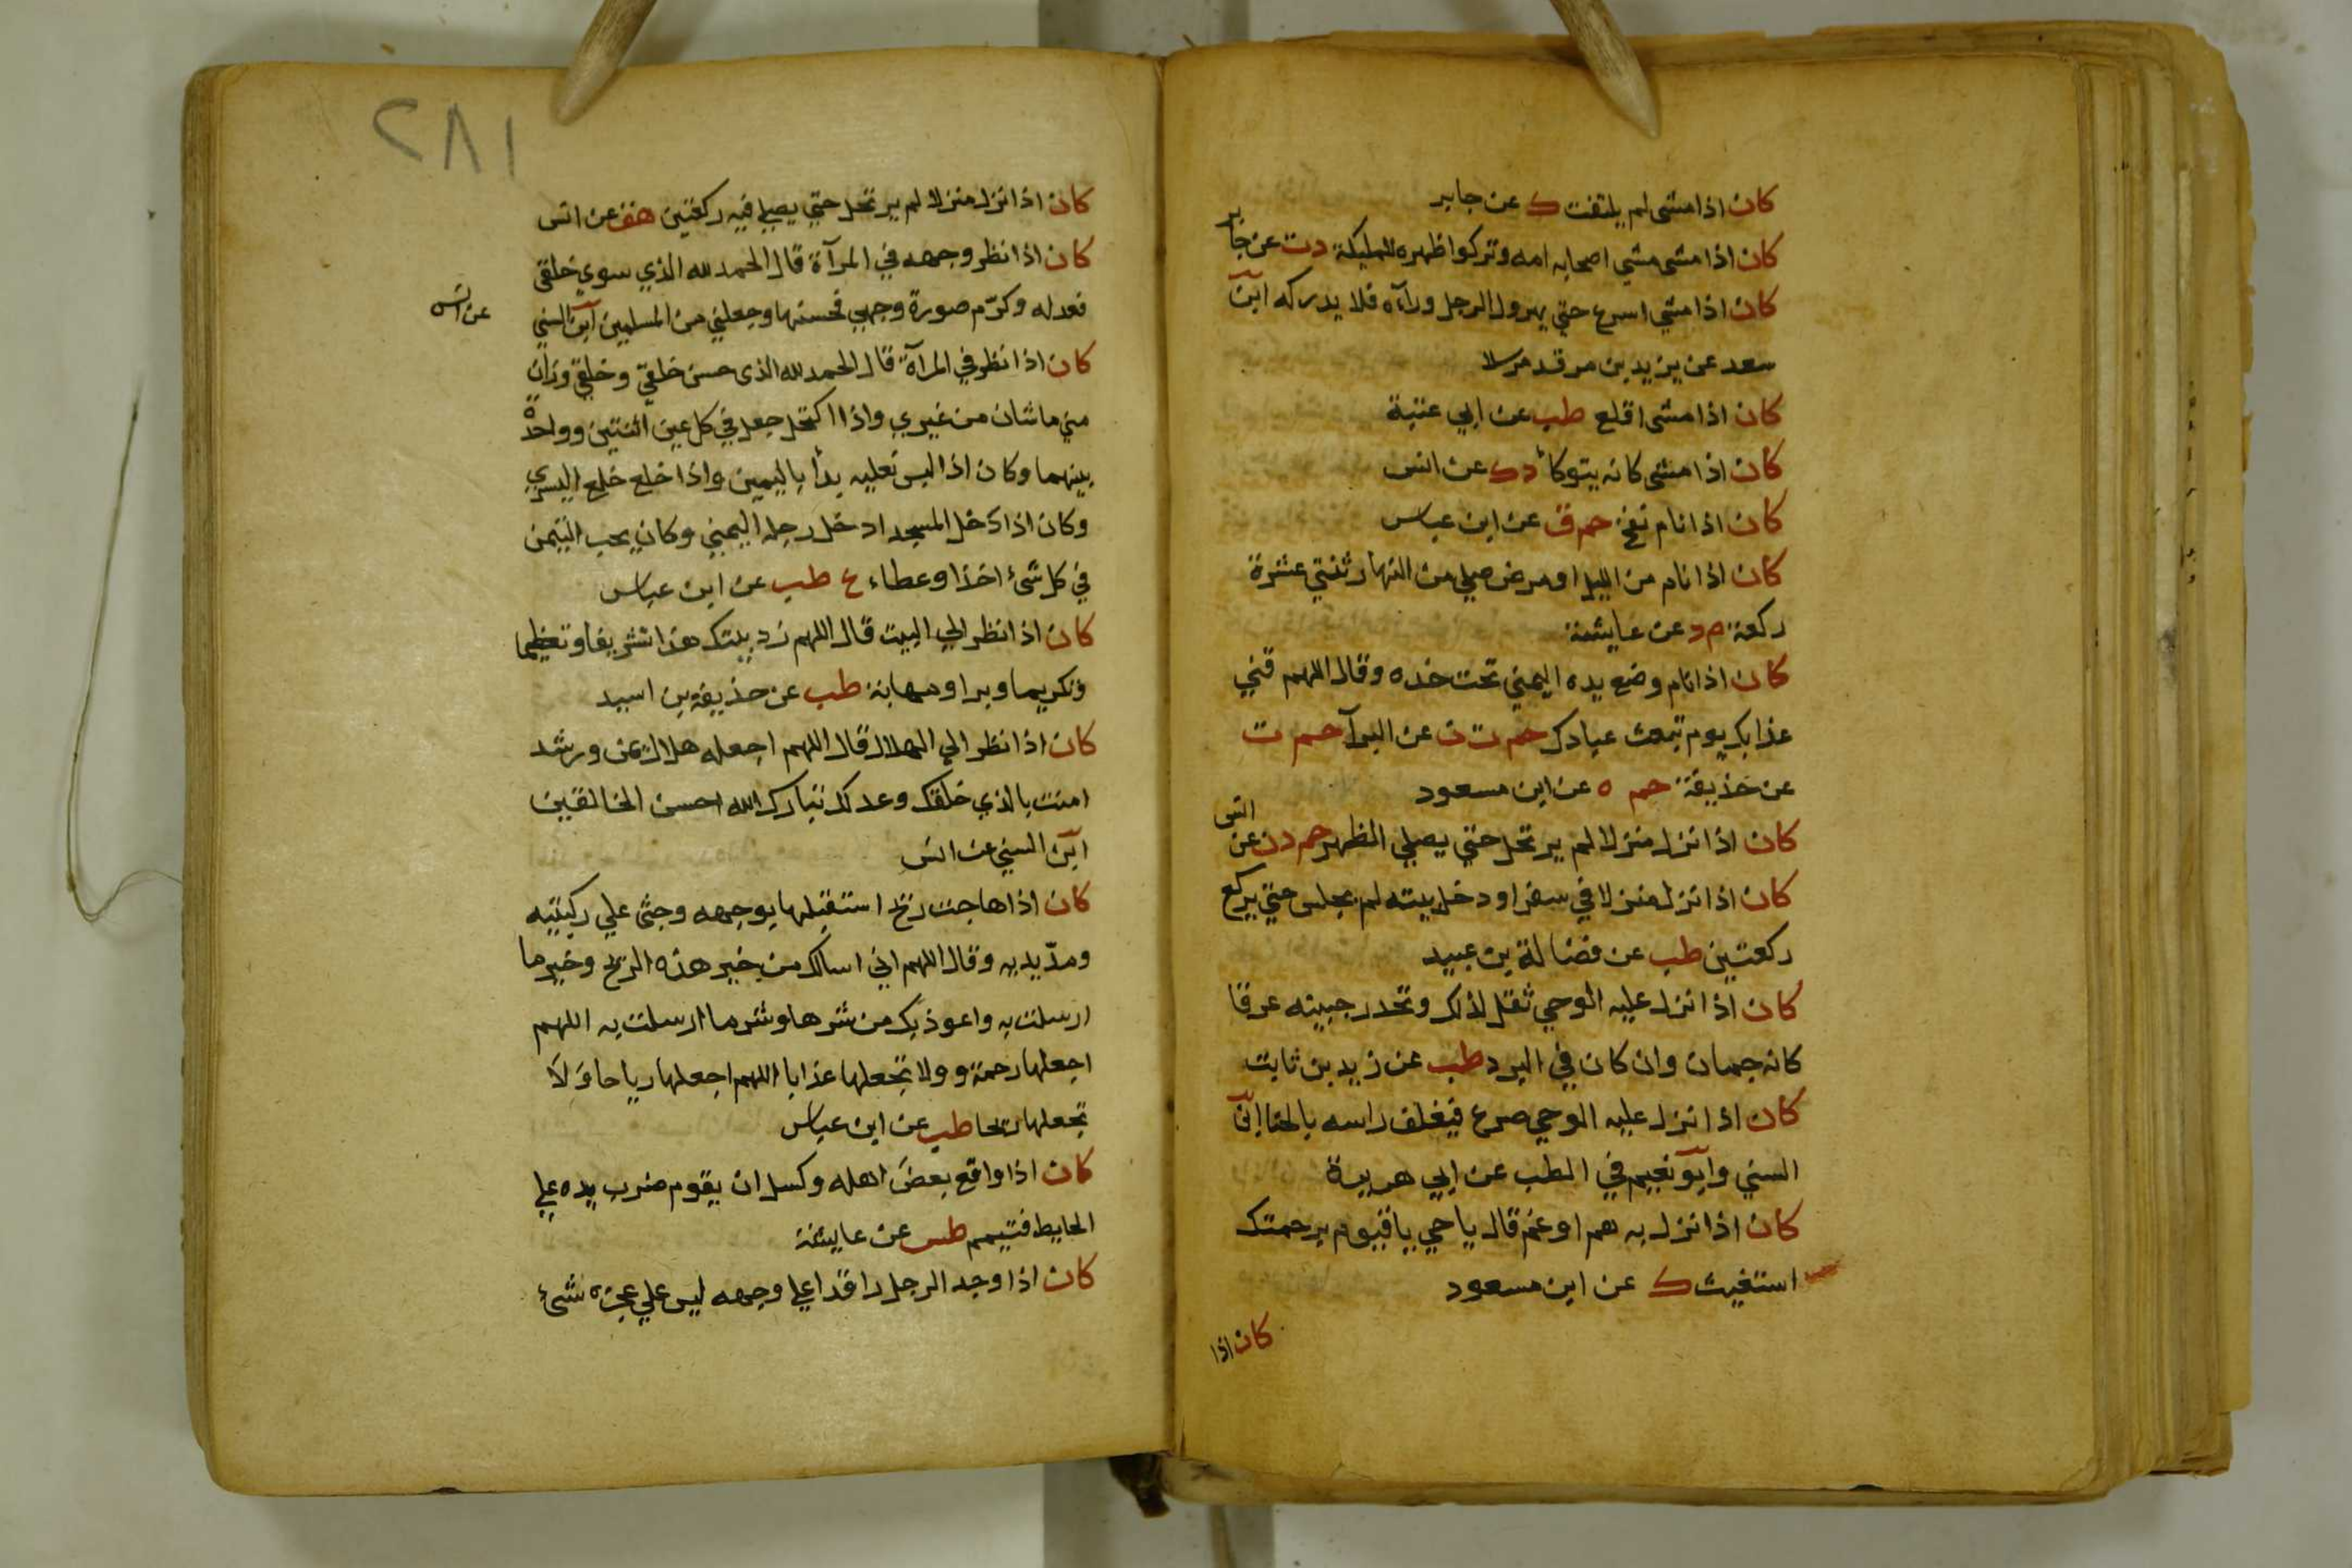 كان اذا مشى لم يلتفت ك عن جابر
كان اذا مشى مشي اصحابه امامه وتركوا ظهره للمليكة دت عن جابر
كان اذا مشي اسرع حتي يهرول الرجل وراءه فلا يدركه ابن
سعد عن يزيد بن مرقد مرسلا
كان اذا مشى اقلع طب عن ابي عنبة
كان اذا مشى كانه يتوكأ دك عن انس
كان اذا نام نفخ حم ق عن ابن عباس
كان اذا نام من الليل او مرض صلي من النهار ثنتي عشرة
ركعة م د عن عايشة
كان اذا نام وضع يده اليمني تحت خده وقال اللهم قني
عذابك يوم تبعث عبادك حم ت ن عن البرآ حم ت
عن خذيفة حم ه عن ابن مسعود
كان اذا نزل منزلا لم يرتحل حتي يصلي الظهر حم دن عن انس
كان اذا نزل منزلا في سفر او دخل بيته لم يجلس حتي يركع
ركعتين طب عن فضالة بن عبيد
كان اذا نزل عليه الوحي ثقل لذلك وتحدر جبينه عرقا
كانه جمان وان كان في البرد طب عن زيد بن ثابت
كان اذا نزل عليه الوحي صدع فيغلف راسه بالحنا ابن
السني وابو نعيم في الطب عن ابي هريرة
كان اذا نزل به هم او غم قال يا حي يا قيوم برحمتك
استغيث ك عن ابن مسعود
كان اذا
٢٨١
كان اذا نزل منزلا لم يرتحل حتي يصلي فيه ركعتين هق عن انس
كان اذا نظر وجهه في المرآة قال الحمد لله الذي سوي خلقي
فعدله وكرّم صورة وجهي فحسنها وجعلني من المسلمين ابن السني عن انس
كان اذا نظر في المرآة قال الحمد لله الذى حسن خلقي وخلقي وزان
مني ما شان من غيري واذا اكتحل جعل في كل عين اثنتين وواحدة
بينهما وكان اذا لبس نعليه بدأ باليمين واذا خلع خلع اليسري
وكان اذا دخل المسجد ادخل رجله اليمني وكان يحب التيمن
في كل شئ اخذا وعطاء ع طب عن ابن عباس
كان اذا نظر الي البيت قال اللهم زد بيتك هذا تشريفا وتعظيما
وتكريما وبرا ومهابة طب عن حذيفة بن اسيد
كان اذا نظر الي الهلال قال اللهم اجعله هلال يمن ورشد
امنت بالذي خلقك وعدلك تبارك الله احسن الخالقين
ابن السني عن انس
كان اذا هاجت ريح استقبلها بوجهه وجثى علي ركبتيه
ومدّ يديه وقال اللهم اني اسالك من خير هذه الريح وخير ما
ارسلت به واعوذ بك من شرها وشر ما ارسلت به اللهم
اجعلها رحمة و ولا تجعلها عذابا اللهم اجعلها رياحا وَلَا
تجعلها ريحا طب عن ابن عباس
كان اذا واقع بعضَ اهله وكسل ان يقوم ضرب يده علي
الحايط فتيمم طس عن عايشة
كان اذا وجد الرجل راقدا علي وجهه ليس علي عجزه شئ